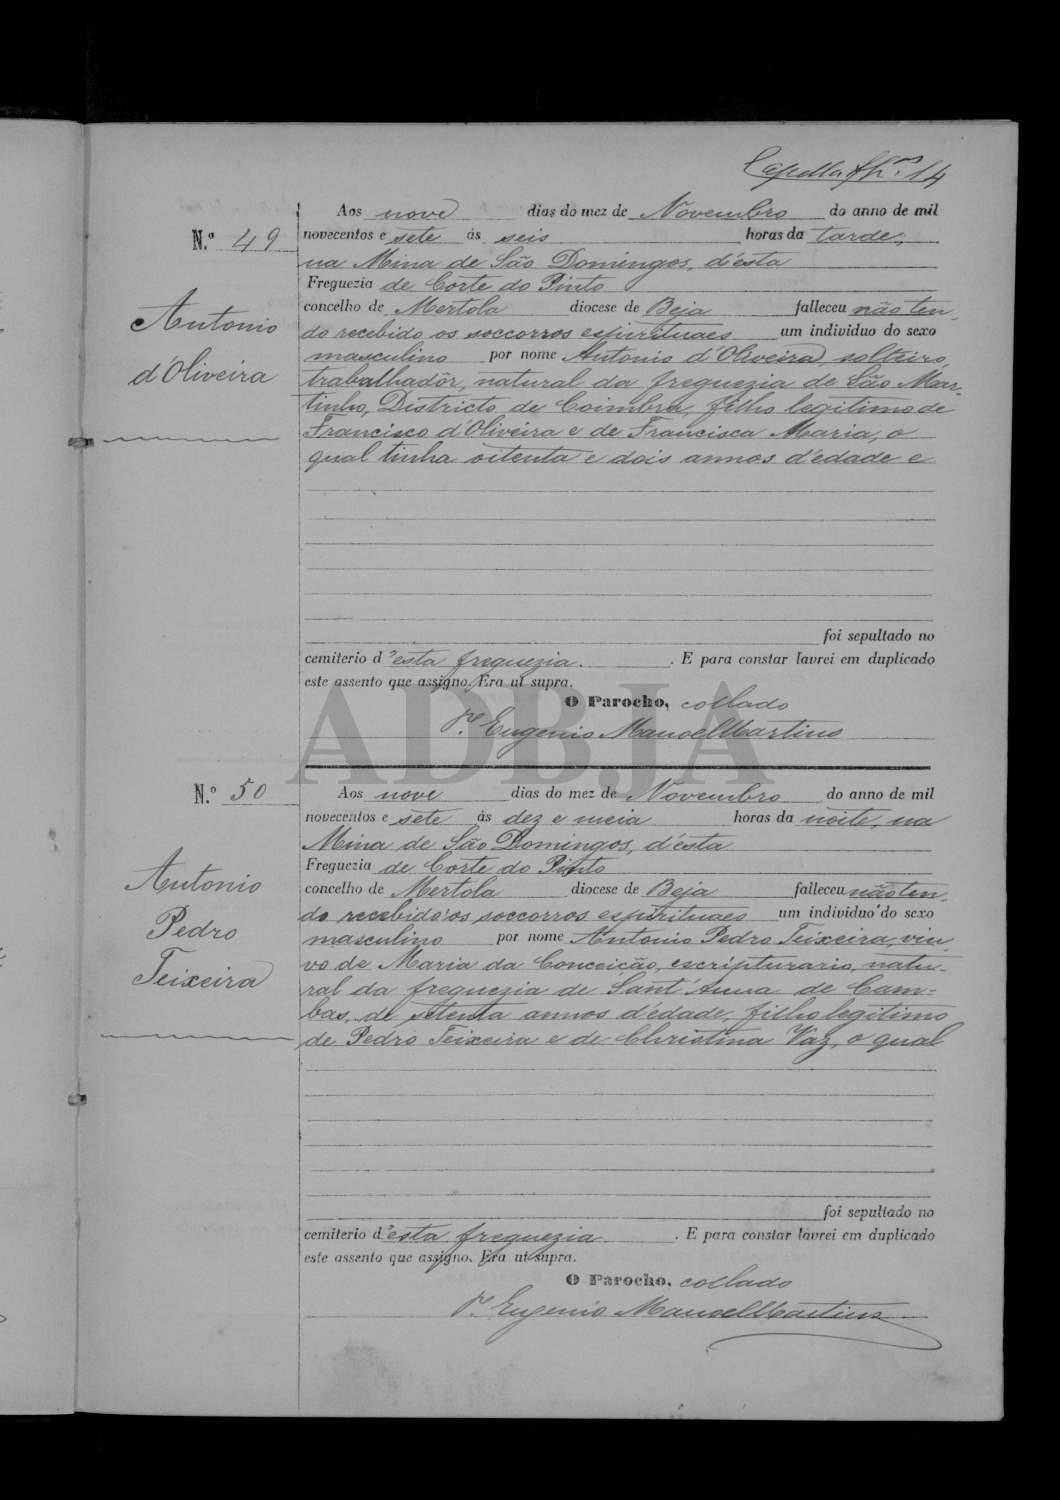 Capella fl.ns 14
N.º 49
Antonio
d'Oliveira
Aos nove dias do mez de Novembro do anno de mil
novecentos e sete ás seis horas da tarde,
na Mina de São Domingos, d'ésta
Freguezia de Corte do Pinto
concelho de Mertola diocese de Beja falleceu não ten-
do recebido os soccorros espirituaes um individuo do sexo
masculino por nome Antonio d'Oliveira, solteiro,
trabalhadôr, natural da freguezia de São Mar-
tinho, Districto de Coimbra, filho legitimo de
Francisco d'Oliveira e de Francisca Maria, o
qual tinha oitenta e dois annos d'edade e
foi sepultado no
cemiterio d'esta freguezia. E para constar lavrei em duplicado
este assento que assigno. Era ut supra.
O Parocho, collado
P.e Eugenio Manoel Martins
ADBJA
N.º 50
Antonio
Pedro
Teixeira
Aos nove dias do mez de Novembro do anno de mil
novecentos e sete ás dez e meia horas da noite, na
Mina de São Domingos, d'ésta
Freguezia de Corte do Pinto
concelho de Mertola diocese de Beja falleceu não ten-
do recebido os soccorros espirituaes um individuo do sexo
masculino por nome Antonio Pedro Teixeira, viu-
vo de Maria da Conceição, escripturario, natu-
ral da freguezia de Sant'Anna de Cam-
bas, de setenta annos d'édade, filho legitimo
de Pedro Teixeira e de Christina Vaz, o qual
foi sepultado no
cemiterio d'esta freguezia. E para constar lavrei em duplicado
este assento que assigno. Era ut supra.
O Parocho, collado
P.e Eugenio Manoel Martins